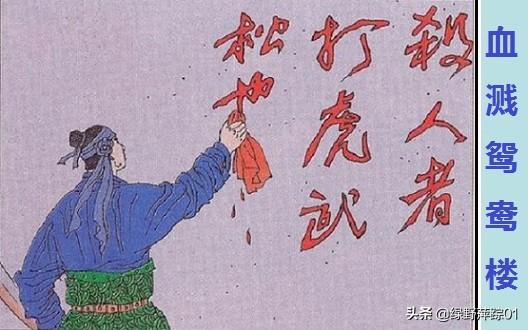 殺人者
打虎武
松也
血溅鸳鸯楼
头条 @绿野萍踪01